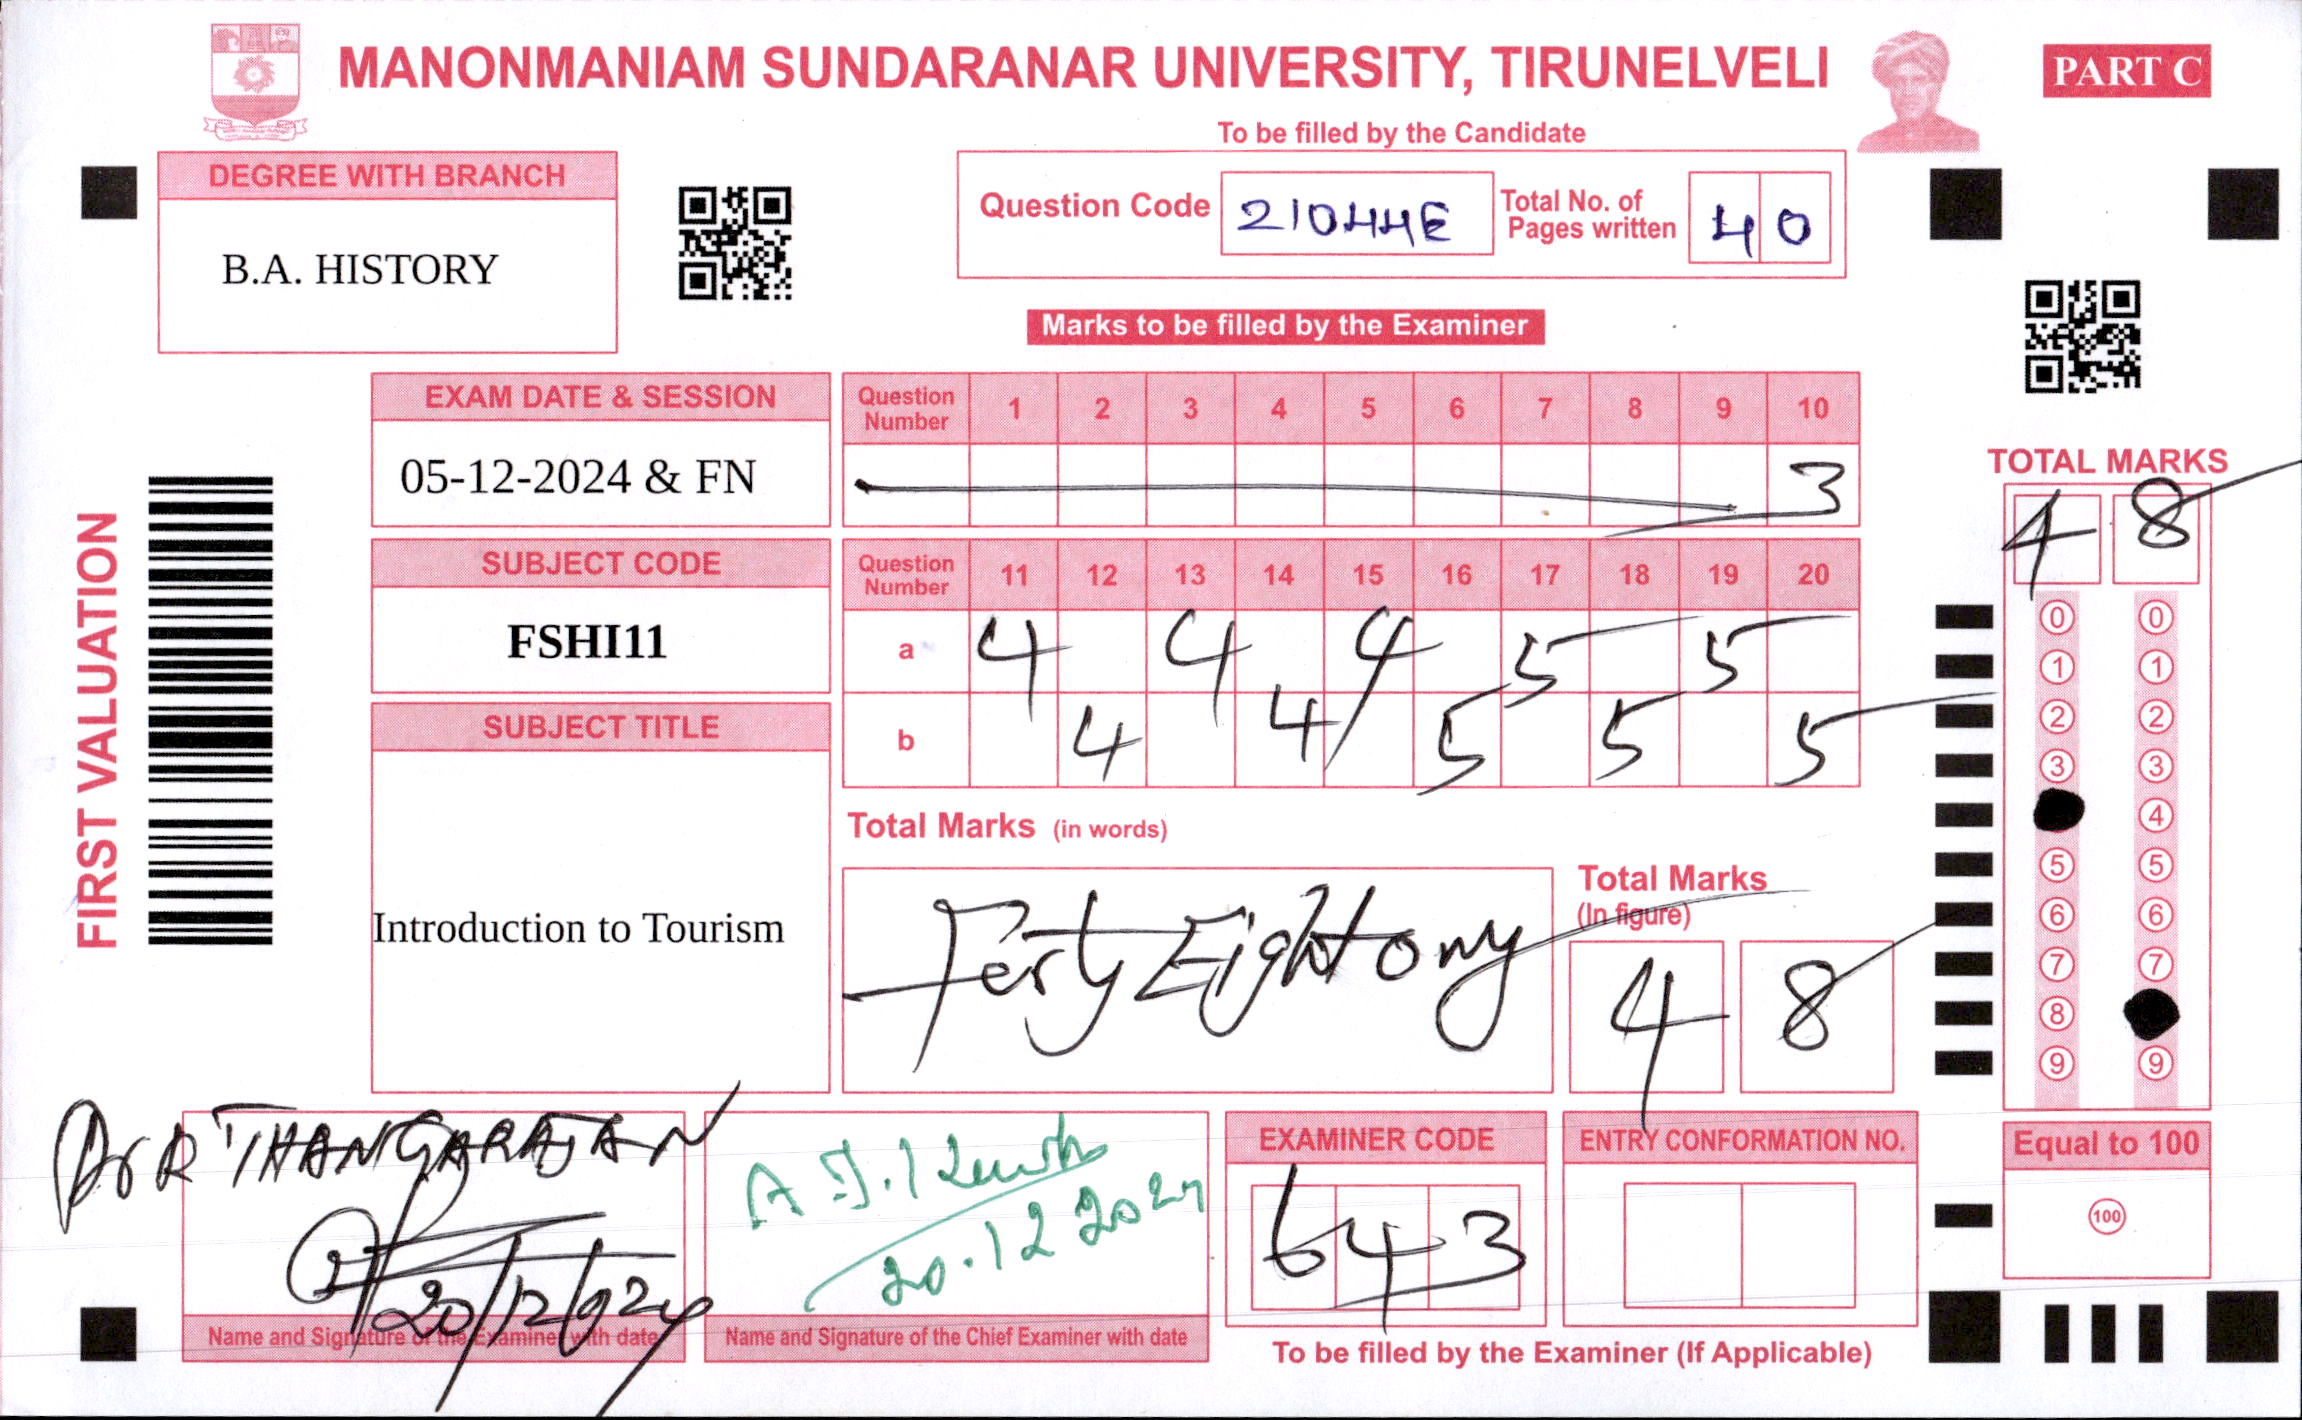 MANONMANIAM SUNDARANAR UNIVERSITY, TIRUNELVELI
PART C
To be filled by the Candidate
DEGREE WITH BRANCH
B.A. HISTORY
Question Code 21044E Total No. of Pages written 40
Marks to be filled by the Examiner
FIRST VALUATION
EXAM DATE & SESSION
05-12-2024 & FN
SUBJECT CODE
FSHI11
SUBJECT TITLE
Introduction to Tourism
Question Number 1 2 3 4 5 6 7 8 9 10
3
Question Number 11 12 13 14 15 16 17 18 19 20
a 4 4 4 5 5
b 4 4 5 5 5
Total Marks (in words)
Forty Eight only
Total Marks
(In figure)
4 8
TOTAL MARKS
4 8
0 0
1 1
2 2
3 3
4
5 5
6 6
7 7
8
9 9
Equal to 100
100
Dr R THANGARAJAN
20/12/2024
Name and Signature of the Examiner with date
20.12 2024
Name and Signature of the Chief Examiner with date
EXAMINER CODE
643
ENTRY CONFORMATION NO.
To be filled by the Examiner (If Applicable)